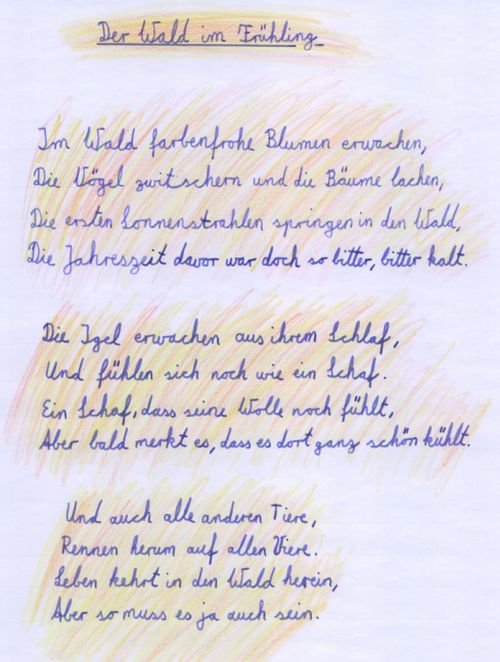 Der Wald im Frühling
Im Wald farbenfrohe Blumen erwachen,
Die Vögel zwitschern und die Bäume lachen,
Die ersten Sonnenstrahlen springen in den Wald,
Die Jahreszeit davor war doch so bitter, bitter kalt.
Die Igel erwachen aus ihrem Schlaf,
Und fühlen sich noch wie ein Schaf.
Ein Schaf, dass seine Wolle noch fühlt,
Aber bald merkt es, dass es dort ganz schön kühlt.
Und auch alle anderen Tiere,
Rennen herum auf allen Viere.
Leben kehrt in den Wald herein,
Aber so muss es ja auch sein.